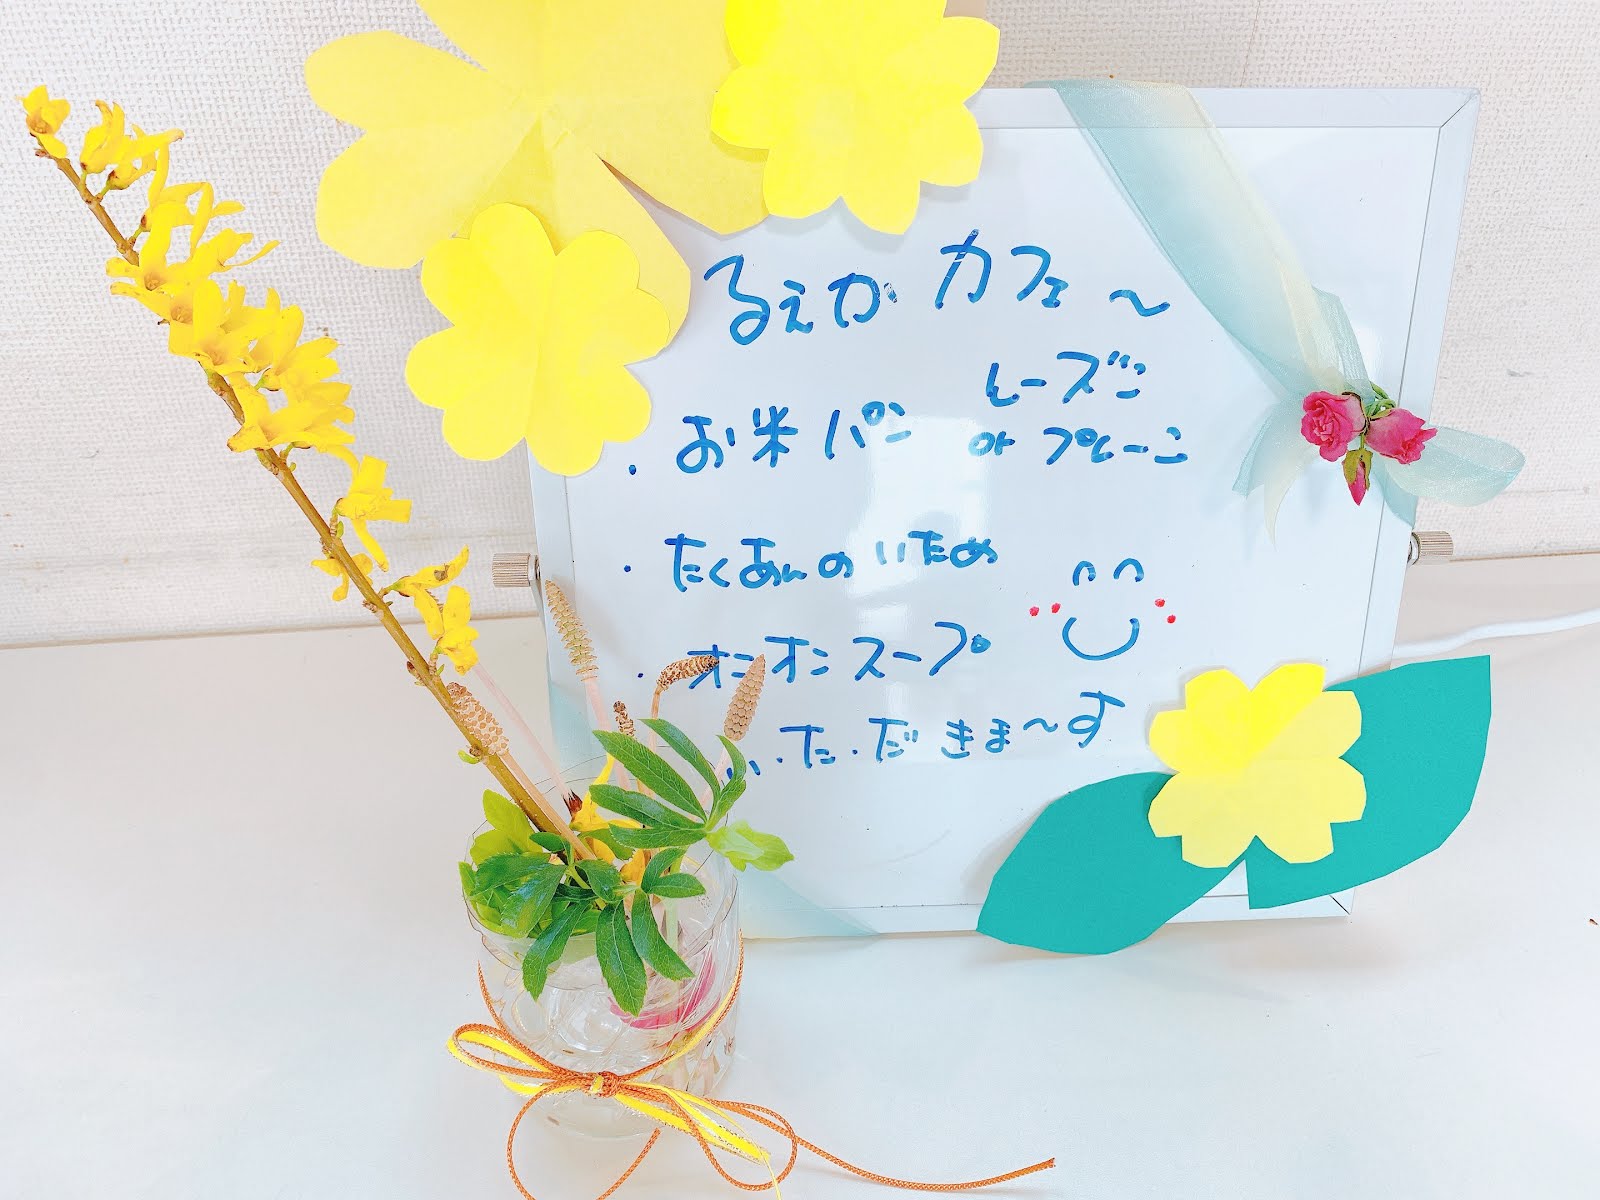 るぇか カフェ～
・お米パン レーズン
or プレーン
・たくあんのいため
・オニオンスープ
い・た・だきま～す